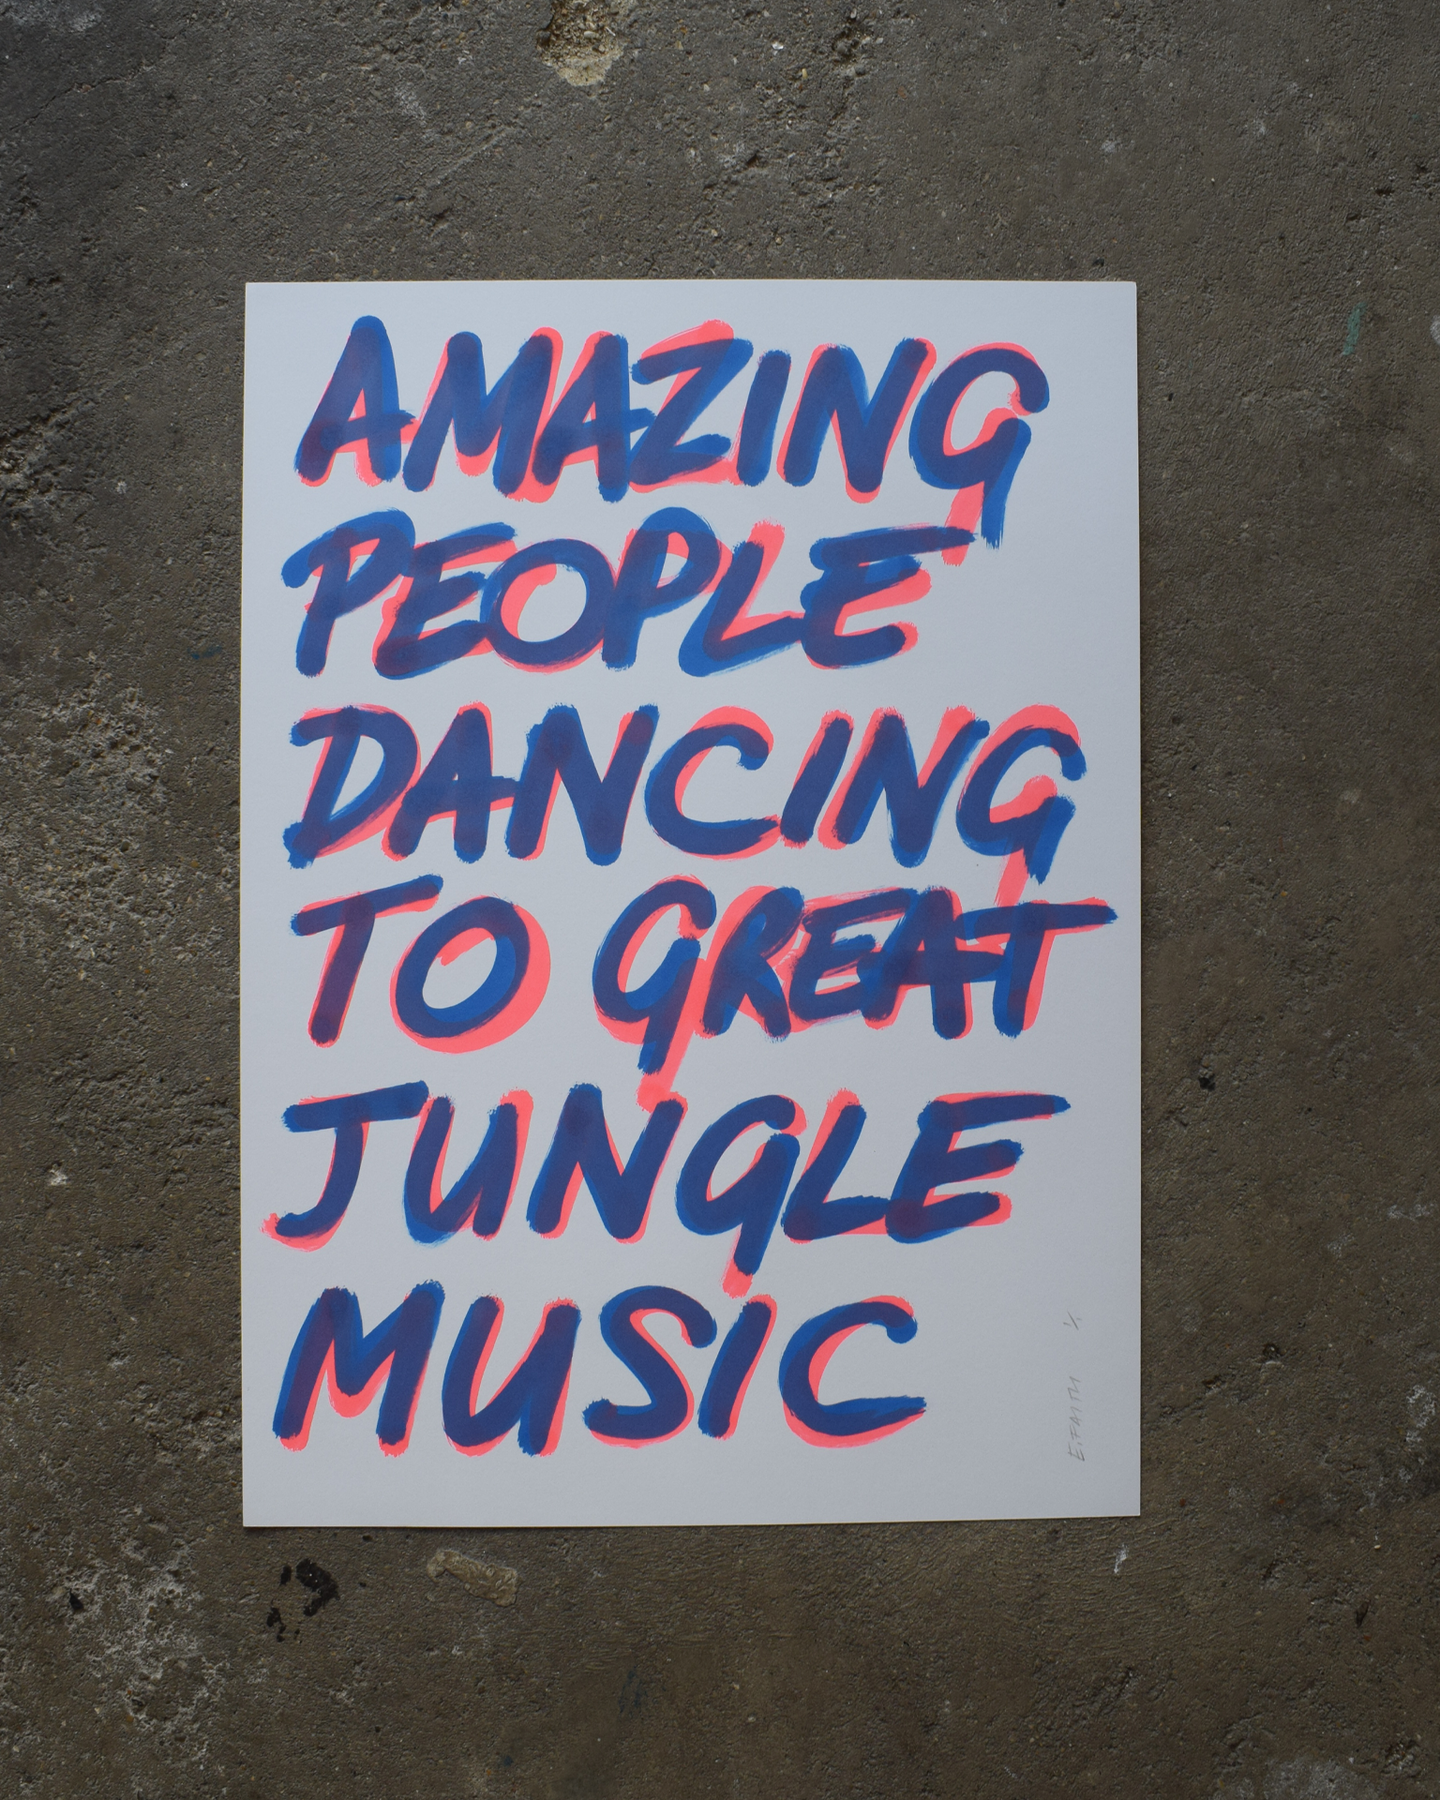 AMAZING
PEOPLE
DANCING
TO GREAT
JUNGLE
MUSIC